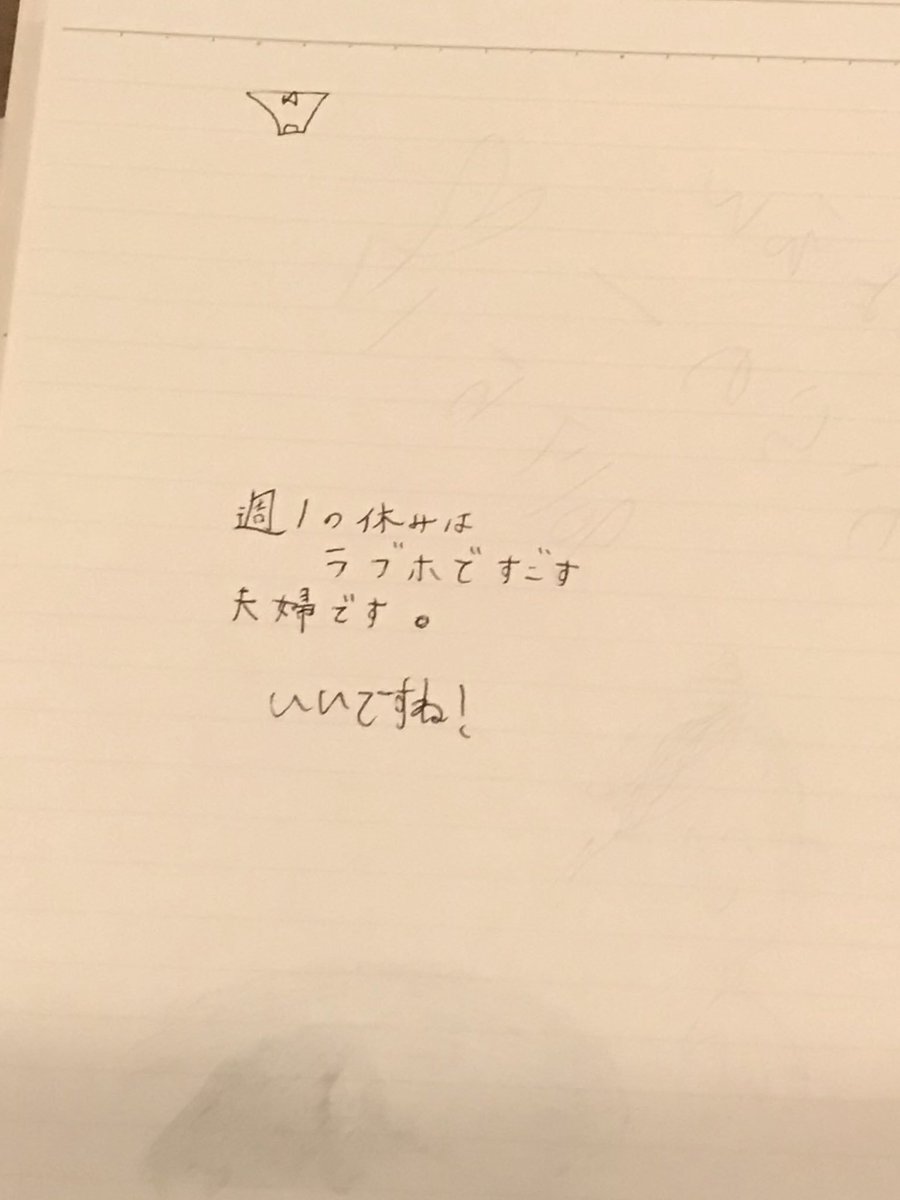 週1の休みは
ラブホですごす
夫婦です。
いいですね!